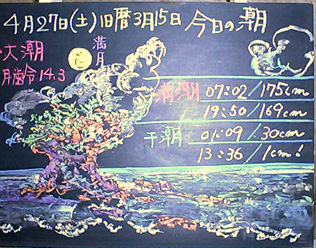 4月27日(土)旧暦3月15日 今日の潮
大潮
月齢令14.3
満月
満潮 07:02/175cm
19:50/169cm
干潮 01:09/30cm
13:36/1cm!